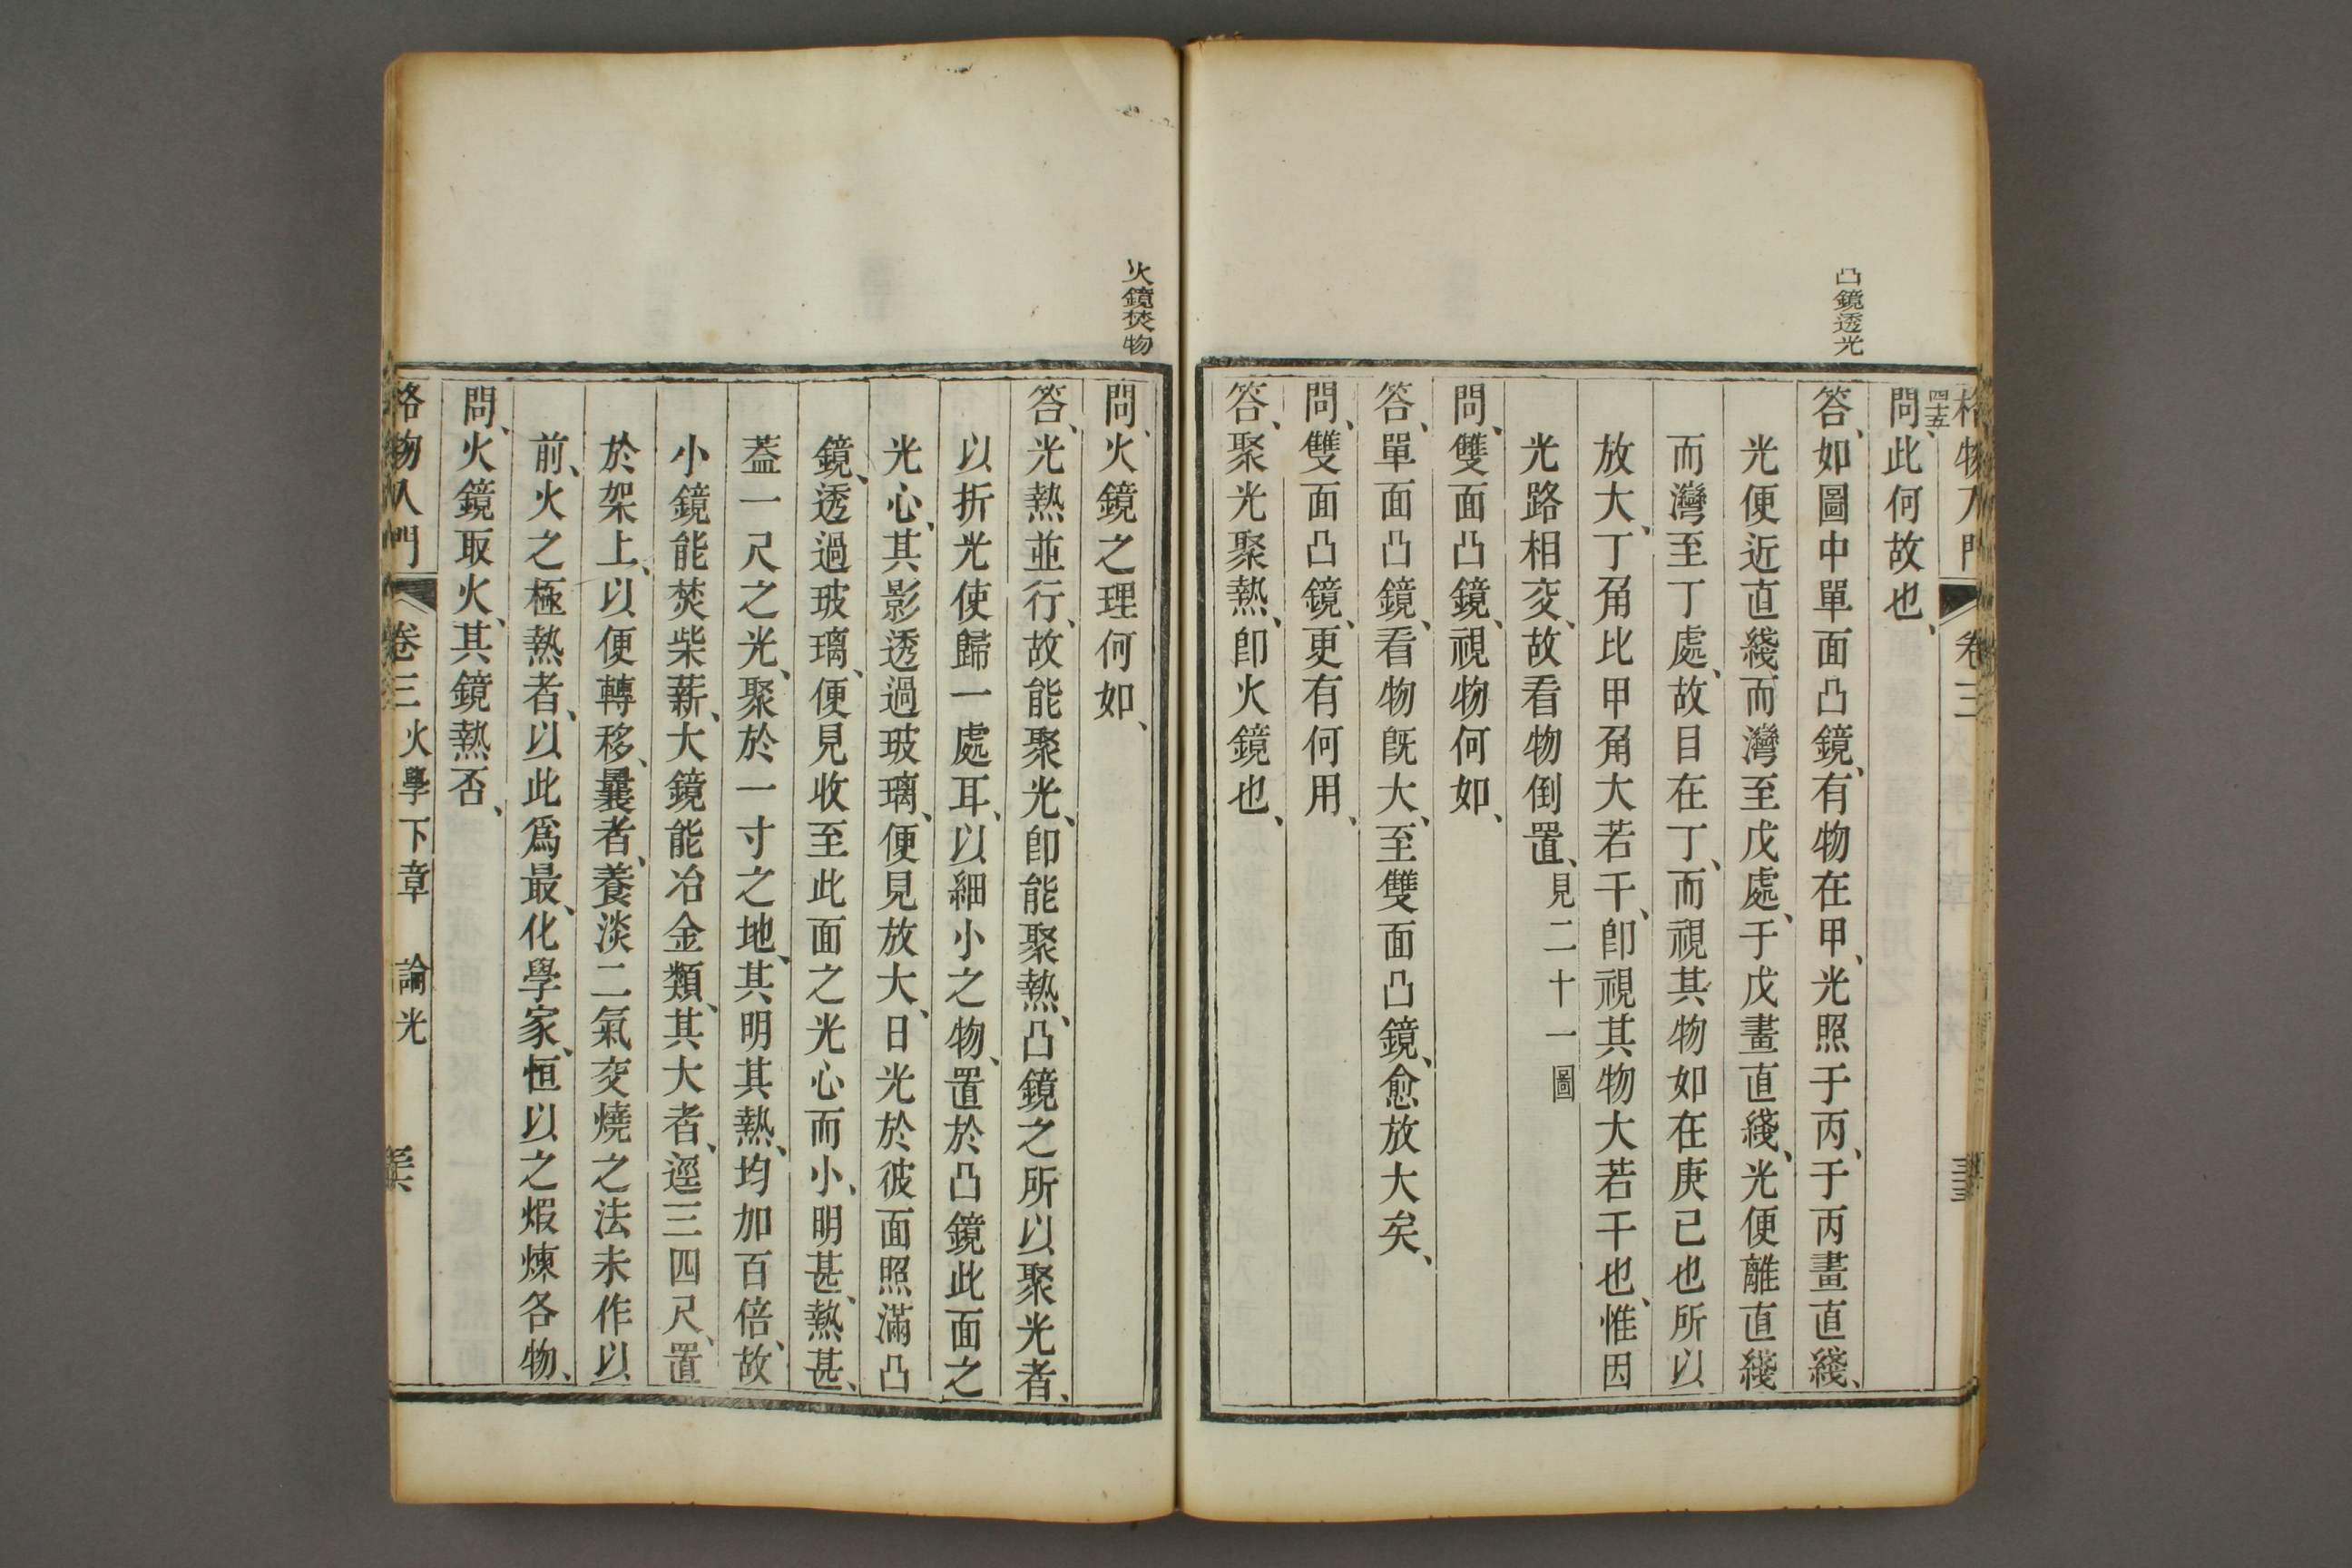 格物入門
卷三
凸鏡透光
四十五
問、此何故也、
答、如圖中單面凸鏡、有物在甲、光照于丙、于丙畫直綫、
光便近直綫而灣至戊處、于戊畫直綫、光便離直綫
而灣至丁處、故目在丁、而視其物如在庚己也所以
放大、丁角比甲角大若干、卽視其物大若干也、惟因
光路相交、故看物倒置、見二十一圖
問、雙面凸鏡、視物何如、
答、單面凸鏡、看物旣大、至雙面凸鏡、愈放大矣、
問、雙面凸鏡、更有何用、
答、聚光聚熱、卽火鏡也、
火鏡焚物
問、火鏡之理何如、
答、光熱並行、故能聚光、卽能聚熱、凸鏡之所以聚光者、
以折光使歸一處耳、以細小之物、置於凸鏡此面之
光心、其影透過玻璃、便見放大、日光於彼面照滿凸
鏡、透過玻璃、便見收至此面之光心而小、明甚、熱甚、
葢一尺之光、聚於一寸之地、其明其熱、均加百倍、故
小鏡能焚柴薪、大鏡能冶金類、其大者、逕三四尺、置
於架上、以便轉移、曩者、養淡二氣交燒之法未作以
前、火之極熱者、以此爲最、化學家、恒以之煆煉各物、
問、火鏡取火、其鏡熱否、
格物入門 卷三 火學下章 論光